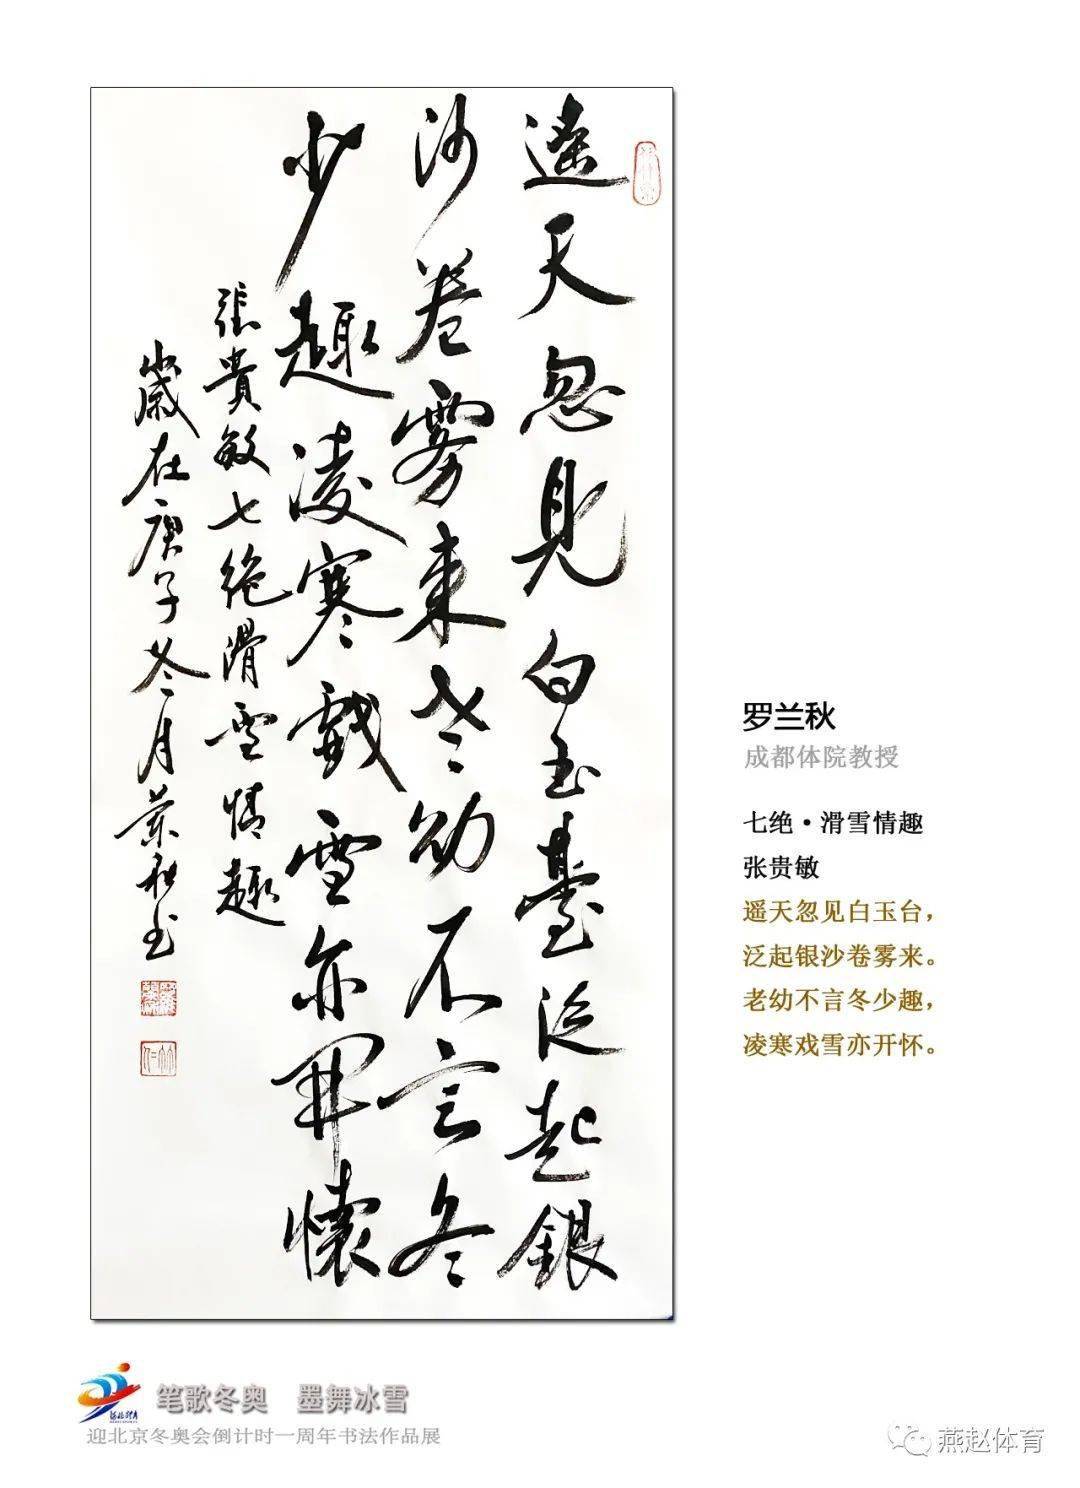 遥天忽見白玉臺泛起銀
沙卷雾来老幼不言冬
少趣凌寒戲雪亦開懷
張貴敏七绝滑雪情趣
歲在庚子冬月蘭秋书
罗兰秋
成都体院教授
七绝·滑雪情趣
张贵敏
遥天忽见白玉台，
泛起银沙卷雾来。
老幼不言冬少趣，
凌寒戏雪亦开怀。
笔歌冬奥 墨舞冰雪
迎北京冬奥会倒计时一周年书法作品展
燕赵体育